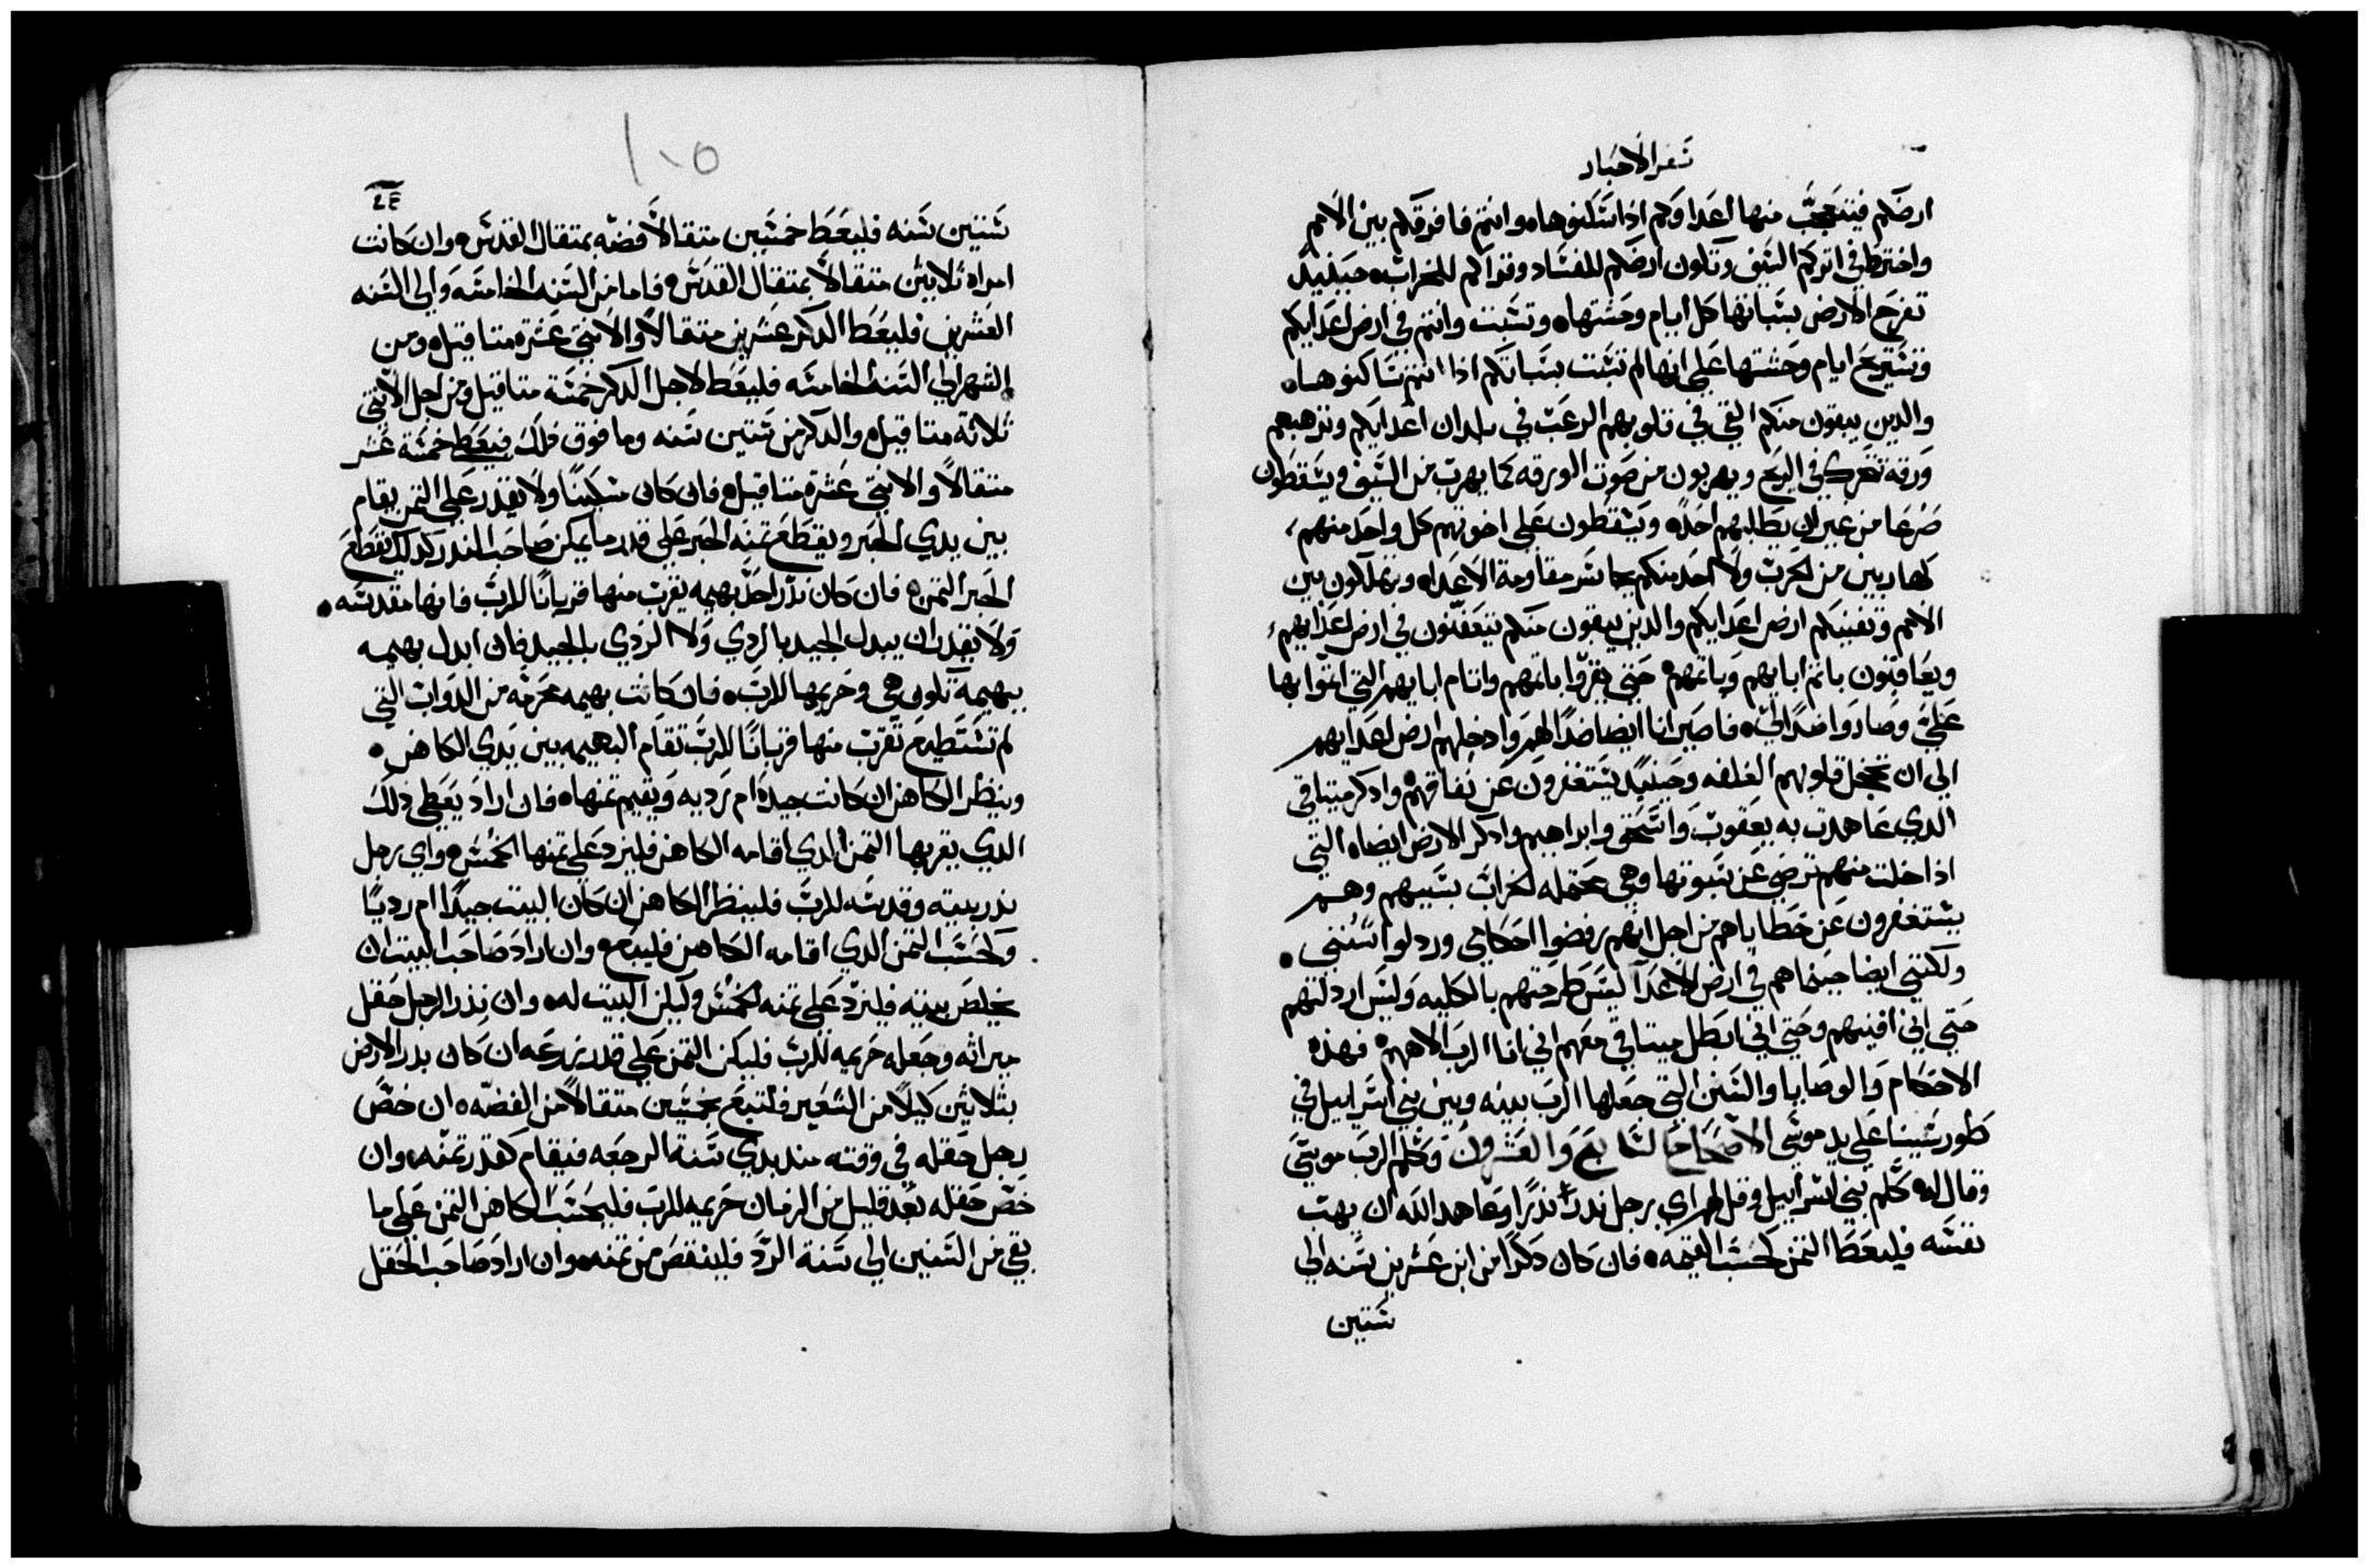 سفر الاحبار
ارضكم فيتعجب منها اعداوكم اذا سكنوهاه وانتم فافرقكم بين الامم
واخترط في اتركم السيف وتكون ارضكم للفساد وقراكم للخراب حينيد
تفرح الارض بسباتها كل ايام وحشتهاه وتسبت وانتم في ارض اعدايكم
وتستريح ايام وحشتها علي انها لم تسبت بسباتكم اذا انتم ساكنوهاه
والدين يبقون منكم القي في قلوبهم الرعب في بلدان اعدايكم وترهبهم
ورقة تتحرك في الريح ويهربون من صوت الورقه كما يهرب من السيف ويسقطون
صرعا من غير ان يطلبهم احده ويسقطون علي اخوتهم كل واحد منهم
كهاربين من الحرب ولا احد منكم يجاسر مقاومة الاعداه وتهلكون بين
الامم وتفنيكم ارض اعدايكم والدين يبقون منكم يتعفنون في ارض اعدايهم
ويعاقبون باتم ابايهم وباتمهم حتي يقروا باتمهم واتام ابايهم التي اتموا بها
علي وصاروا ضدا ليه فاصير انا ايضا ضدا لهم وادخلهم ارض اعدايهم
الي ان تخجل قلوبهم الغلفه وحينيد يستغفرون عن نفاقهم وادكر ميتاقي
الدي عاهدت به يعقوب واسحق وابراهيم وادكر الارض ايضاه التي
اذا خلت منهم ترضي عن سبوتها وهي محتمله الخراب بسببهم وهم
يستغفرون عن خطاياهم من اجل انهم رفضوا احكامي وردلوا سنني
ولكنني ايضا حينما هم في ارض الاعدا ليس طرحتهم بالكليه وليس اردلتهم
حتي اني افنيهم وحتي اني ابطل ميتاقي معهم اني انا الرب الاههم فهذه
الاحكام والوصايا والسنن التي جعلها الرب بينه وبين بني اسراييل في
طور سينا علي يد موسي الاصحاح السابع والعشرون وكلم الرب موسي
وقال له كلم بني اسراييل وقل لهم اي رجل ندر ندرا وعاهد الله ان يهب
نفسه فليعطا التمن كحسب القيمه فان كان دكرا من ابن عشرين سنه الي
ستين
١٠٥
ستين سنه فليعط خمسين متقالا فضه بمتقال القدس وان كانت
امراه تلاتين متقالا بمتقال القدس فاما من السنه الخامسه والي السنه
العشرين فليعط الدكر عشرين متقالا والانتي عشرة متاقيل ومن
الشهر الي السنه الخامسه فليعط لاجل الدكر خمسة متاقيل ومن اجل الانتي
تلاتة متاقيل والدكر من ستين سنه وما فوق فلك فيعط خمسة عشر
متقالا والانتي عشرة متاقيل فان كان مسكينا ولا يقدر علي التمن يقام
بين يدي الحبر ويقطع تمنه الحبر علي قدر ما يمكن صاحب الندر كدلك يقطع
الحبر التمن فان كان ندر احد بهيمه يقرب منها قربانا للرب فانها مقدسه
ولا يقدر ان يبدل الجيد بالردي ولا الردي بالجيد فان ابدل بهيمه
ببهيمة تكون هي وحريمها للرب فان كانت بهيمه محرمه من الدواب التي
لم تستطيع تقرب منها قربانا للرب تقام البهيمه بين يدي الكاهن
وينظر الكاهن ان كانت جيده ام رديه ويقيم تمنهاه فان اراد يعطي دلك
الدي يقربها التمن الدي اقامه الكاهن فليزد علي تمنها الخمس واي رجل
ندر بيته وقدسه للرب فلينظر الكاهن ان كان البيت جيدا ام رديا
وكحسب التمن الدي اقامه الكاهن فليبع وان اراد صاحب البيت ان
يخلص بيته فليزد علي تمنه الخمس وليكن البيت له وان ندر الرجل حقل
ميراته وجعله حريمه للرب فليكن التمن علي قدر زرعه ان كان بدر الارض
بتلاتين كيلا من الشعير فلتبع بخمسين متقالا من الفضه ان خص
رجل حقله في وقته مند بدي سنة الرجعه فيقام كقدر تمنه وان
خص حقله بعد قليل من الزمان حريمه للرب فليحسب الكاهن التمن علي ما
بقي من السنين الي سنة الرد فلينقص من تمنه وان اراد صاحب الحقل